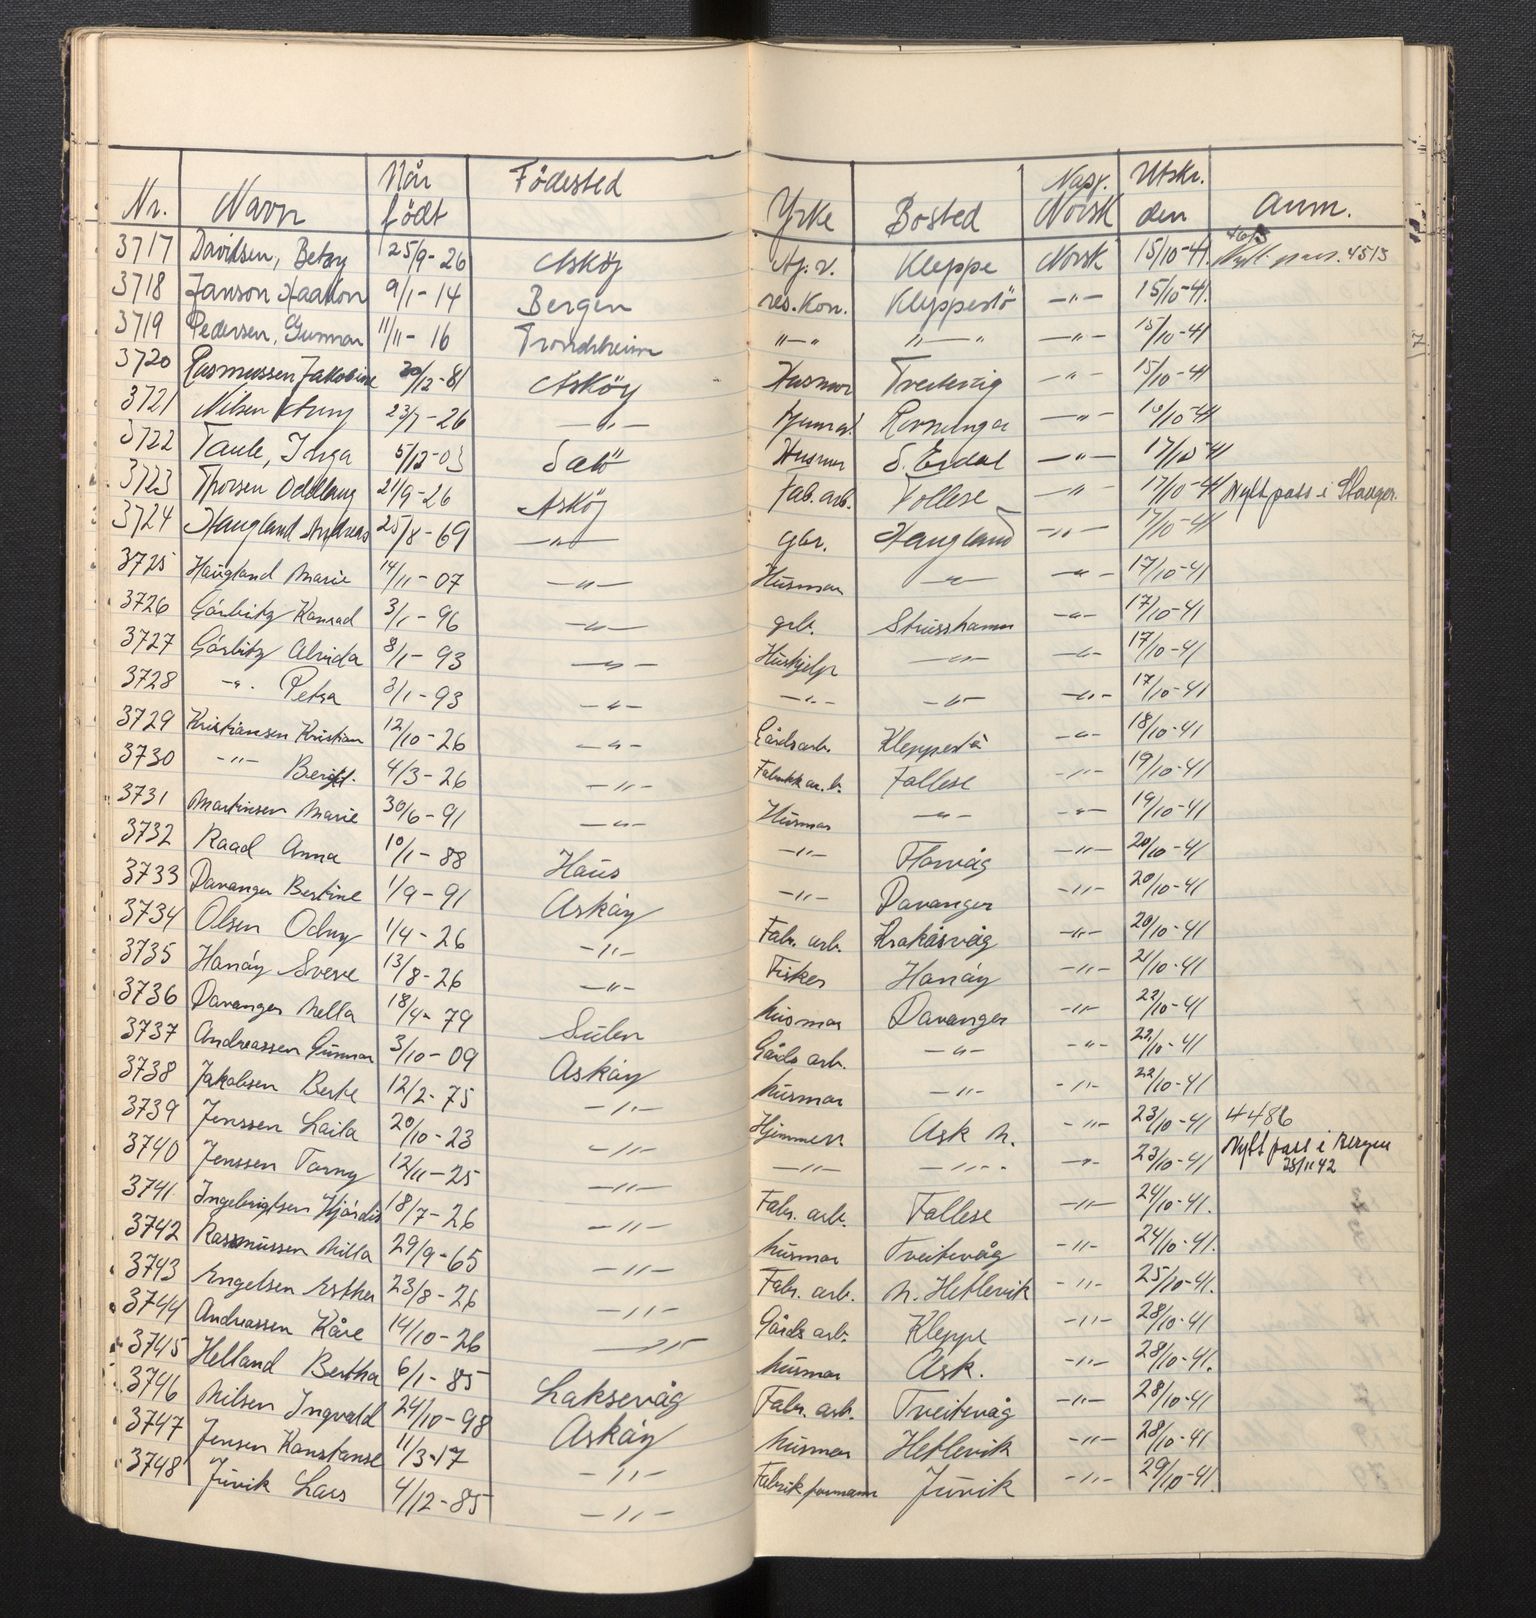 Nr. Navn Når födt Födested Yrke Bosted Norsk Utskr. den Anm.
3717 Davidsen, Betzy 25/9-26 Asköy Kleppe Norsk 15/10-41. 4513
3718 Janson Haakon 9/1-14 Bergen res. Kon. Kleppestö -"- 15/10-41.
3719 Pedersen, Gunnar 11/11-16 Trondheim "-" "-" -"- 15/10-41
3720 Rasmussen Jakobine 20/12-81 Asköy Husmor Treitevåg -"- 15/10-41
3721 Nilsen 23/7-26 -"- -"- /10-41
3722 Taule, Inga 5/12-03 Husmor S. Erdal -"- 17/10-41
3723 Thorsen Oddlaug 21/9-26 Asköy Fab. arb. Follese -"- 17/10-41 Nytt pass i Stavger.
3724 Haugland Andreas 25/8-69 -"- gbr. Haugland -"- 17/10-41
3725 Haugland Marie 14/11-07 -"- Husmor -"- -"- 17/10-41
3726 Görbitz Konrad 3/1-96 -"- grb. Strusshamn -"- 17/10-41
3727 Görbitz Alvida 8/1-93 -"- Hushjelp -"- -"- 17/10-41
3728 -"- Petra 3/1-93 -"- -"- -"- -"- 17/10-41
3729 Kristiansen Kristian 12/10-26 -"- Gårdsarb. Kleppestö -"- 18/10-41
3730 -"- Berit. 4/3-26 -"- Fabrikk ar. b. Follese -"- 19/10-41
3731 Martinsen Marie 30/6-91 -"- Husmor -"- -"- 19/10-41
3732 Raad Anna 10/1-88 Haus -"- Florvåg -"- 20/10-41
3733 Davanger Bertine 1/9-91 Asköy -"- Davanger -"- 20/10-41
3734 Olsen Odny 1/4-26 -"- Fabr. arb. Krokåsvåg -"- 20/10-41
3735 Hanöy Sverre 13/8-26 -"- Fisker Hanöy -"- 21/10-41
3736 Davanger Mella 18/4-79 Sulen husmor Davanger -"- 22/10-41
3737 Andreassen Gunnar 3/10-09 Asköy Gårds arb. -"- -"- 22/10-41
3738 Jakobsen Berte 12/2-75 -"- husmor -"- -"- 22/10-41
3739 Jenssen Laila 20/10-23 -"- Hjemmev. Ask M. -"- 23/10-41 4486
3740 Jenssen Torny 12/11-25 -"- -"- -"- -"- 23/10-41 Nytt pass i Bergen 25/11 42
3741 Ingebrigtsen Hjördis 18/7-26 -"- Fabr. arb. Follese -"- 24/10-41.
3742 Rasmussen Milla 29/9-65 -"- husmor Treitevåg -"- 24/10-41.
3743 Engelsen Esther 23/8-26 -"- Fabr. arb. M. Hetlevik -"- 25/10-41.
3744 Andreassen Kåre 14/10-26 -"- Gårds arb. Kleppe -"- 28/10-41
3745 Helland Bertha 6/1-85 Laksevåg husmor Ask. -"- 28/10-41.
3746 Nilsen Ingvald 24/10-98 Asköy Fabr. arb. Treitevåg -"- 28/10-41
3747 Jensen Konstanse 11/3-17 -"- husmor Hetlevik -"- 28/10-41
3748 Juvik Lars 4/12-85 -"- Fabrik formann Juvik -"- 29/10-41.